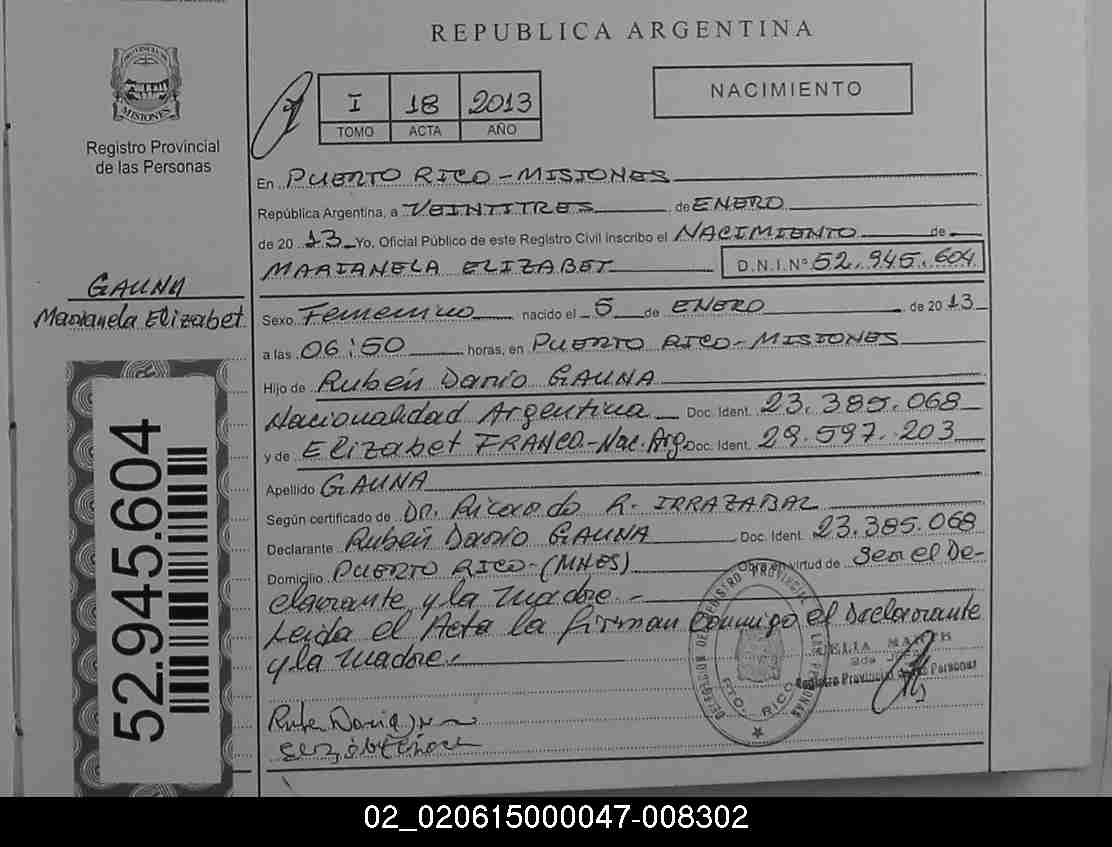 REPUBLICA ARGENTINA
PROVINCIA DE
MISIONES
Registro Provincial
de las Personas
I 18 2013
TOMO ACTA AÑO
NACIMIENTO
En PUERTO RICO - MISIONES
República Argentina, a VEINTITRES de ENERO
de 20 13 Yo. Oficial Público de este Registro Civil inscribo el NACIMIENTO de
MARIANELA ELIZABET D.N.I.N° 52.945.604
GAUNA
Marianela Elizabet
Sexo Femenino nacido el 5 de ENERO de 20 13
a las 06:50 horas, en PUERTO RICO - MISIONES
Hijo de Rubén Dario GAUNA
Nacionalidad Argentina Doc. Ident. 23.385.068
y de Elizabet FRANCO - Nac. Arg. Doc. Ident. 29.597.203
Apellido GAUNA
Según certificado de Dr. Ricardo R. IRRAZABAL
Declarante Rubén Dario GAUNA Doc. Ident. 23.385.068
Domicilio PUERTO RICO - (MNES) Obra en virtud de Ser el De-
clarante y la madre.-
Leida el Acta la firman Conmigo el Declarante
y la madre.-
DELEGACION DEL REGISTRO PROVINCIAL DE LAS PERSONAS
PTO. RICO
Registro Provincial Personas
52.945.604
02_020615000047-008302